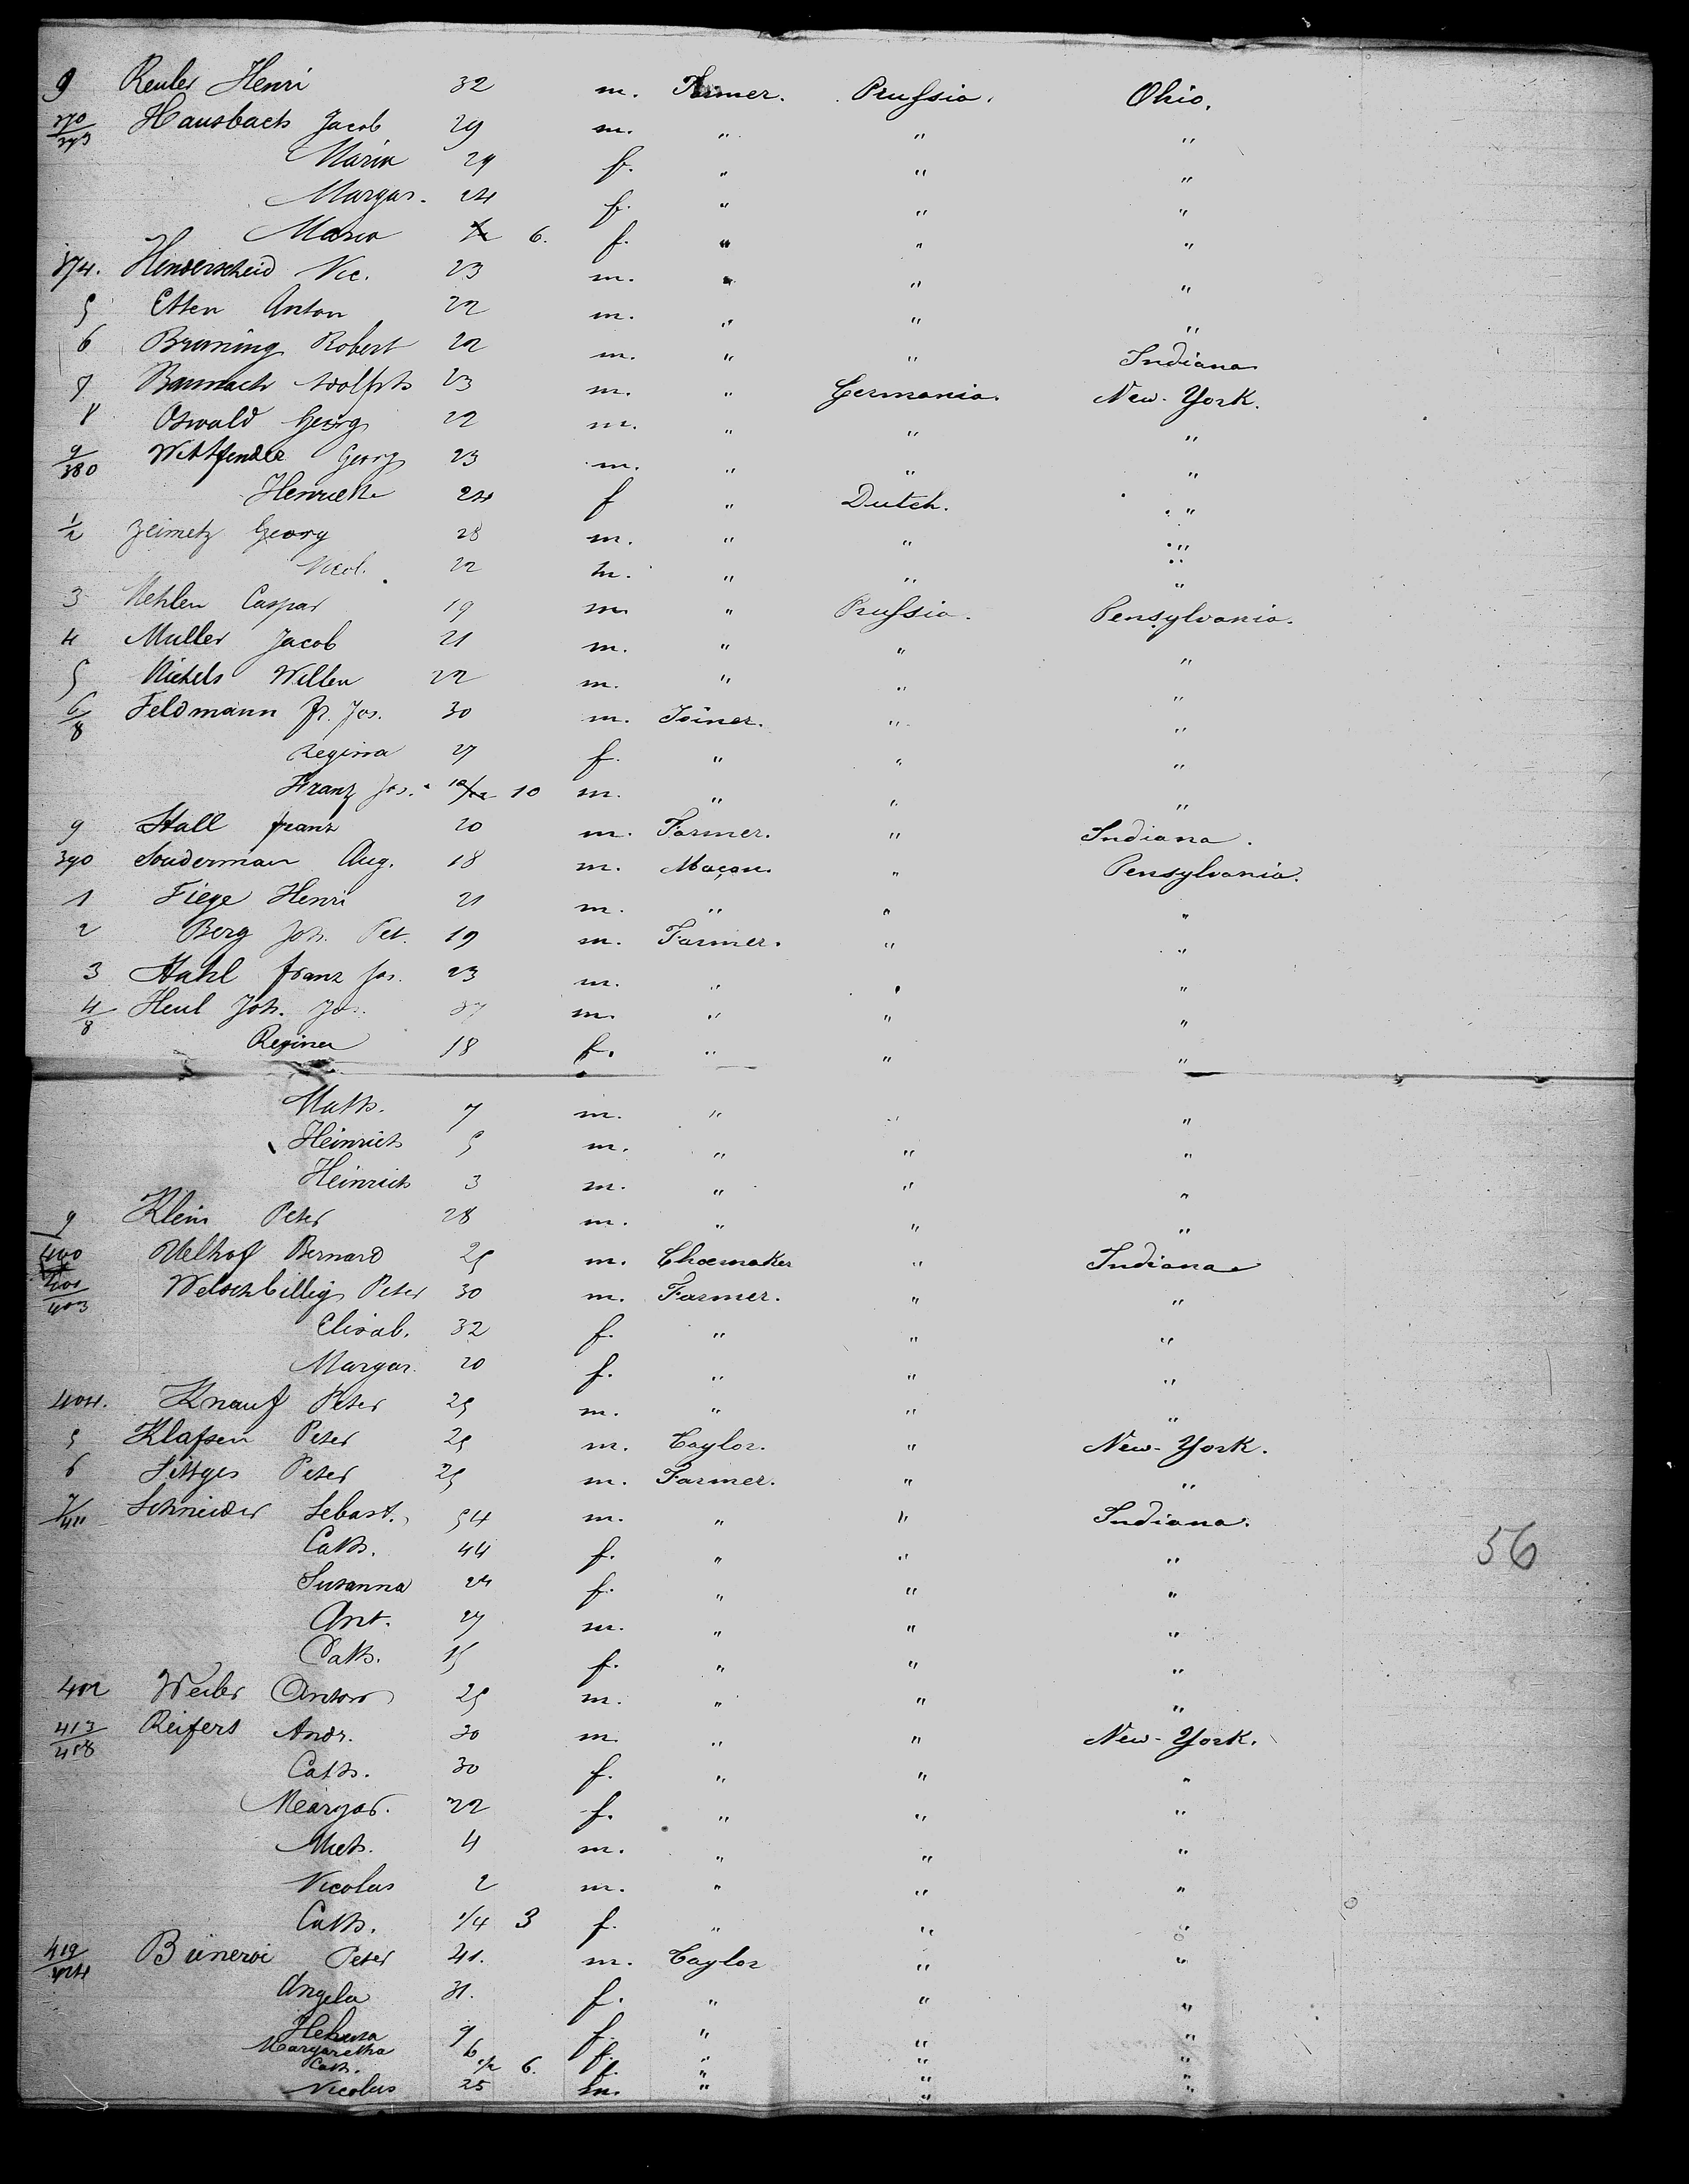 9 Reuler Henri 32 m. Farmer. Prussia. Ohio.
370/373 Hausbach Jacob 29 m. " " "
Maria 29 f. " " "
Margar. 24 f. " " "
Maria 6. f. " " "
374. Henderscheid Nic. 23 m. " " "
5 Etten Anton 22 m. " " "
6 Bruning Robert 22 m. " " Indiana
7 Baumach Adolph 23 m. " Germania. New-York.
8 Oswald Georg 22 m. " " "
9/380 Georg 23 m. " " "
Henriette 24 f " Dutch. "
1/2 Zeimetz Georg 28 m. " " "
Nicol. 22 m. " " "
3 Mehlen Caspar 19 m " Prussia. Pensylvania.
4 Muller Jacob 21 m. " " "
5 Nichels Willem 22 m. " " "
6/8 Feldmann fr. Jos. 30 m. Joiner. " "
Regina 27 f. " " "
Franz Jos. 10/12 10 m. " " "
9 Stall franz 20 m. Farmer. " Indiana.
390 Souderman Aug. 18 m. Maçon. " Pensylvania.
1 Fiege Henri 21 m. " " "
2 Berg Joh. Pet. 19 m. Farmer. " "
3 Stahl franz Jos. 23 m. " " "
4/8 Heul Joh. m. " " "
Regina 18 f. " " "
Math. 7 m. " " "
Heinrich 5 m. " " "
Heinrich 3 m. " " "
9 Klein Peter 28 m. " " "
400 Uelhof Bernard 25 m. Choemaker " Indiana
401/403 Welschbillig Peter 30 m. Farmer. " "
Elisab. 32 f. " " "
Margar. 20 f. " " "
404. Knauf Peter 25 m. " " "
5 Klassen Peter 25 m. Taylor. " New-York.
6 Sittges Peter 25 m. Farmer. " "
7/411 Schneider Sebast. 54 m. " " Indiana.
Cath. 44 f. " " "
56
Susanna 24 f. " " "
Ant. 27 m. " " "
Cath. 15 f. " " "
412 Weiler Anton 25 m. " " "
413/418 Reifers Andr. 30 m. " " New-York.
Cath. 30 f. " " "
Margar. 22 f. " " "
Mich. 4 m. " " "
Nicolas 2 m. " " "
Cath. 1/4 3 f. " " "
419/424 Peter 41. m. Taylor " "
Angela 31. f. " " "
Helena 9 f. " " "
Margaretha 6 f. " " "
Cath. 1/2 6. f. " " "
Nicolas 25 m. " " "